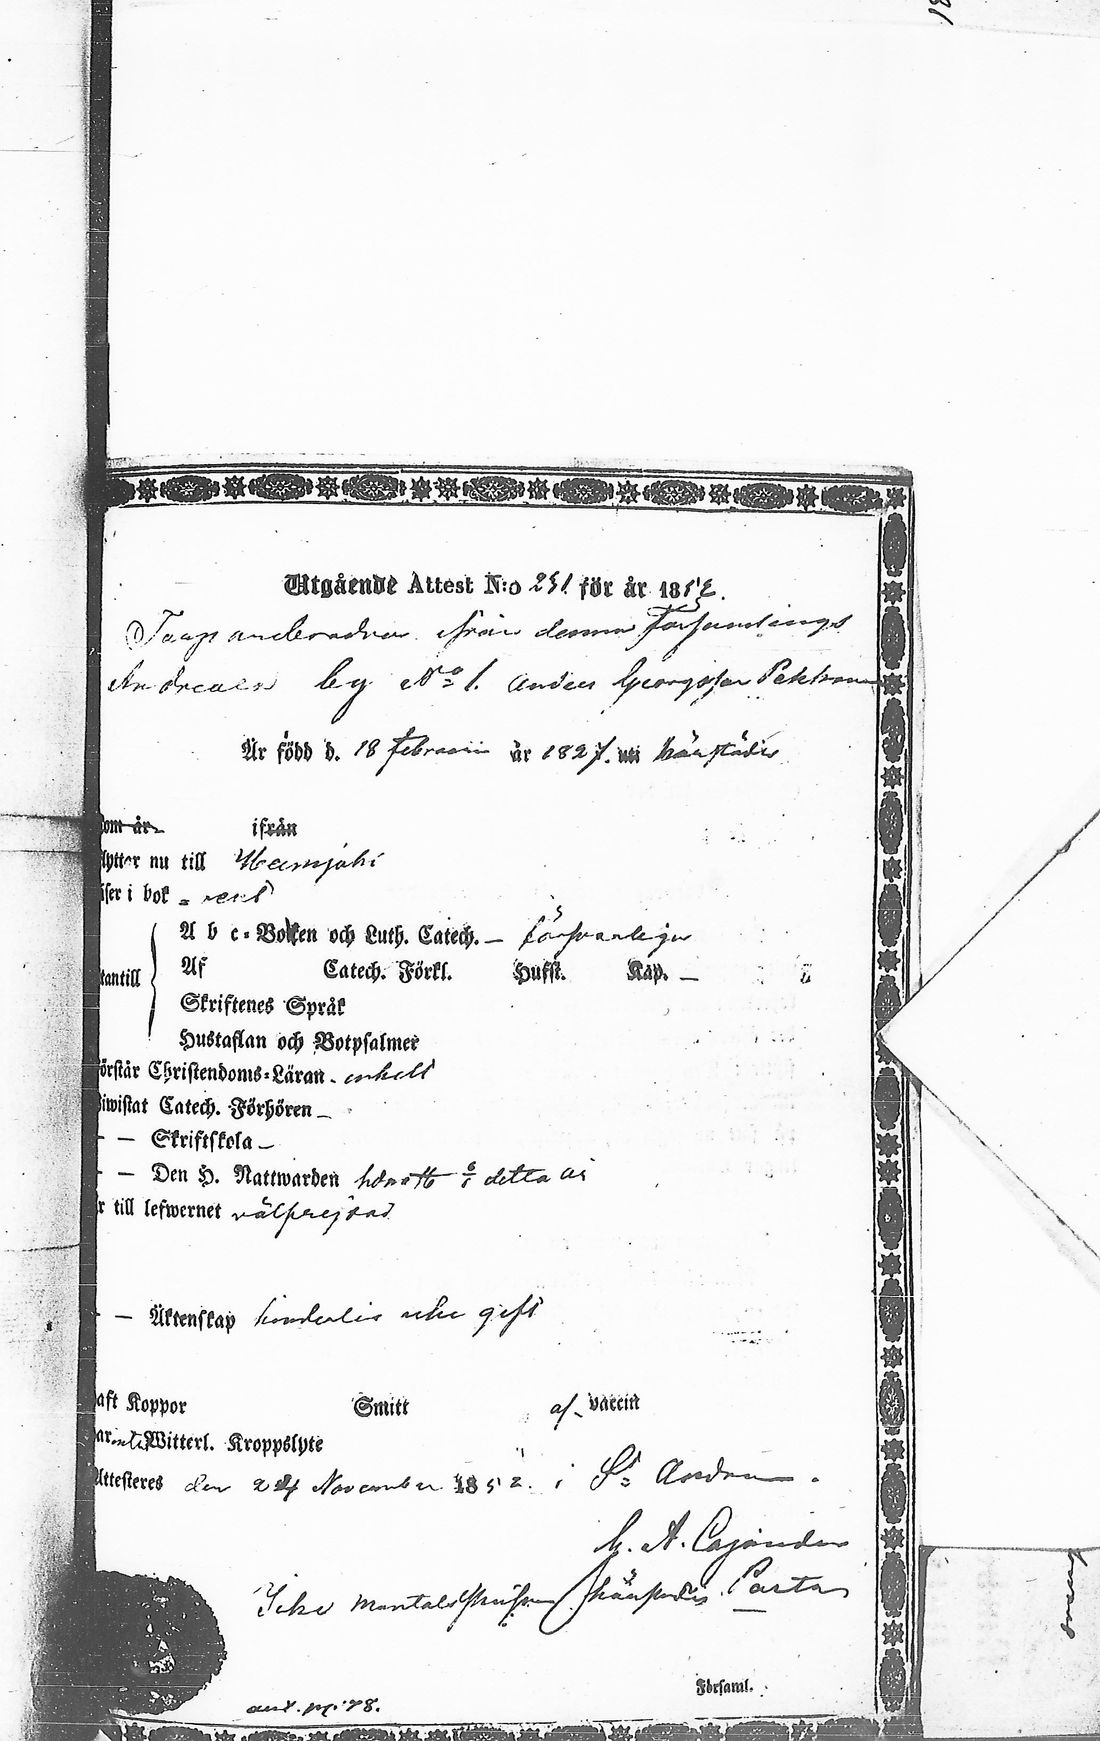 Utgående Attest N:o 251. för år 1852.
från denna Församlings
by No 1. Anders Georgsson Pekkanen
Är född d. 18 Februari år 1827. härstädes
om år ifrån
lyttar nu till Heinjoki
äser i bok - rent
A b c-Boken och Luth. Catech. - försvarligen
tantill
Af Catech. Förkl. Husst. Kap. -
Skriftenes Språk
Hustaflan och Botpsalmer
örstår Christendoms-Läran - enkelt
iwistat Catech. Förhören -
- - Skriftskola -
- - Den H. Nattwarden detta år
r till lefwernet välfrejdad
- - Äktenskap hinderlös icke gift
aft Koppor Smitt af vaccin
ar Witterl. Kroppslyte
Attesteres den 24 November 1852. i St Andrea.
A. Cajander
Icke mantalsskrifven härstädes Pastor
Församl.